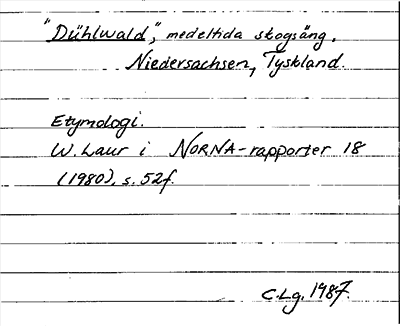 "Dühlwald", medeltida skogsäng.
Niedersachsen, Tyskland.
Etymologi.
W. Laur i NORNA-rapporter 18
(1980), s. 52f.
C.Lg. 1987.